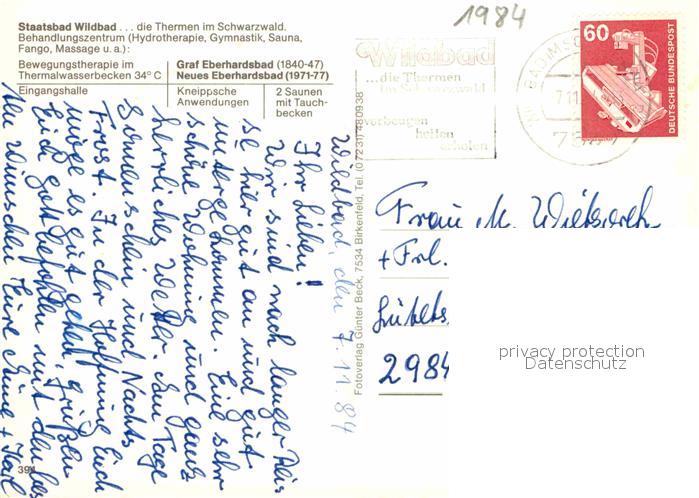 Staatsbad Wildbad . . . die Thermen im Schwarzwald.
Behandlungszentrum (Hydrotherapie, Gymnastik, Sauna,
Fango, Massage u. a.):
Bewegungstherapie im
Thermalwasserbecken 34° C
Graf Eberhardsbad (1840-47)
Neues Eberhardsbad (1971-77)
Eingangshalle
Kneippsche
Anwendungen
2 Saunen
mit Tauch-
becken
1984
Wildbad
...die Thermen
im Schwarzwald
vorbeugen
helfen
erholen
7.11.
75
60
DEUTSCHE BUNDESPOST
Fotoverlag Günter Beck, 7534 Birkenfeld, Tel. (07231) 480938
Wildbad, den 7.11.84
Ihr Lieben!
Wir sind nach langer Rei-
se hier gut an und gut
untergekommen. Eine sehr
schöne Wohnung und ganz
herrliches Wetter. Am Tage
Sonnenschein und Nachts
Frost. In der Hoffnung Euch
möge es gut gehen, grüßen
Euch Gott befohlen mit den bes
ten Wünschen Eure Anne + Karl
Frau M.
+ Frl.
2984
privacy protection
Datenschutz
394